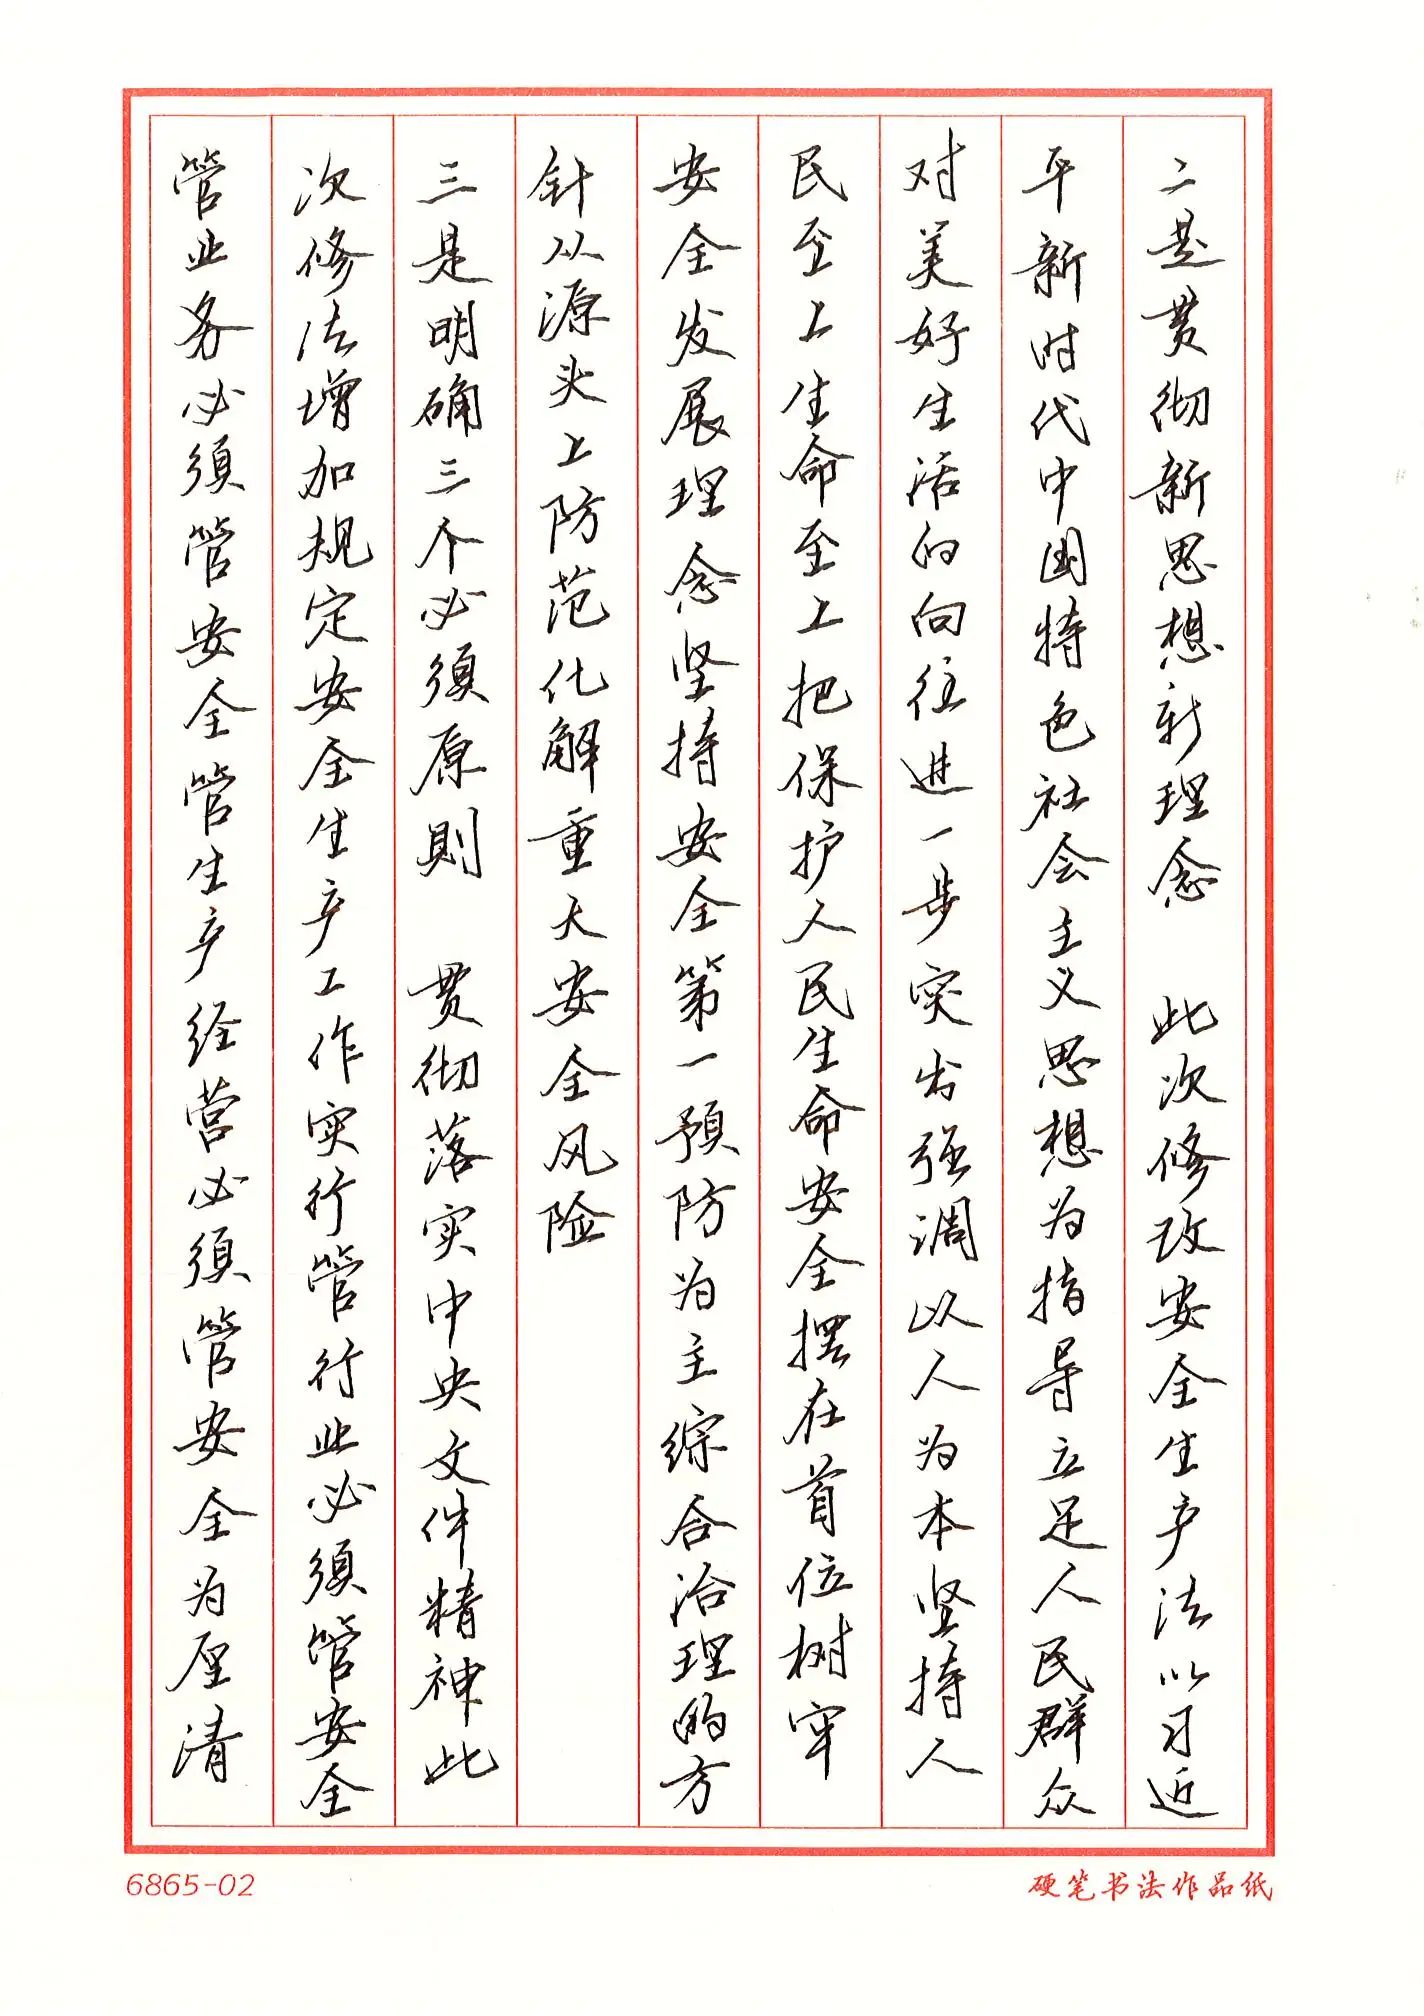 二是贯彻新思想新理念 此次修改安全生产法以习近
平新时代中国特色社会主义思想为指导立足人民群众
对美好生活的向往进一步突出强调以人为本坚持人
民至上生命至上把保护人民生命安全摆在首位树牢
安全发展理念坚持安全第一预防为主综合治理的方
针从源头上防范化解重大安全风险
三是明确三个必须原则 贯彻落实中央文件精神此
次修法增加规定安全生产工作实行管行业必须管安全
管业务必须管安全管生产经营必须管安全为厘清
6865-02
硬笔书法作品纸